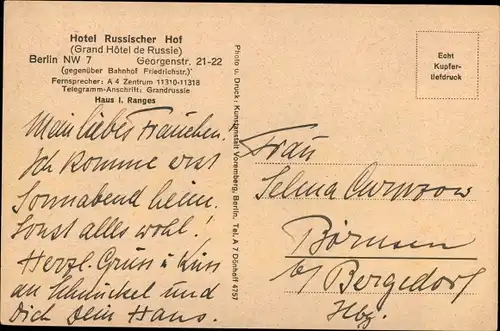 Hotel Russischer Hof
(Grand Hôtel de Russie)
Berlin NW 7 Georgenstr. 21-22
(gegenüber Bahnhof Friedrichstr.)
Fernsprecher: A 4 Zentrum 11310-11318
Telegramm-Anschrift: Grandrussie
Haus I. Ranges
Mein liebes Frauchen.
Ich komme erst
Sonnabend heim.
Sonst alles wohl!
Herzl. Gruss u Kuss
an und
Dich Dein Hans.
Photo u. Druck: Kunstanstalt Voremberg, Berlin. Tel. A 7 Dönhoff 4757
Echt
Kupfer-
tiefdruck
Frau
Selma
Börnsen
b/ Bergedorf
Hbg.